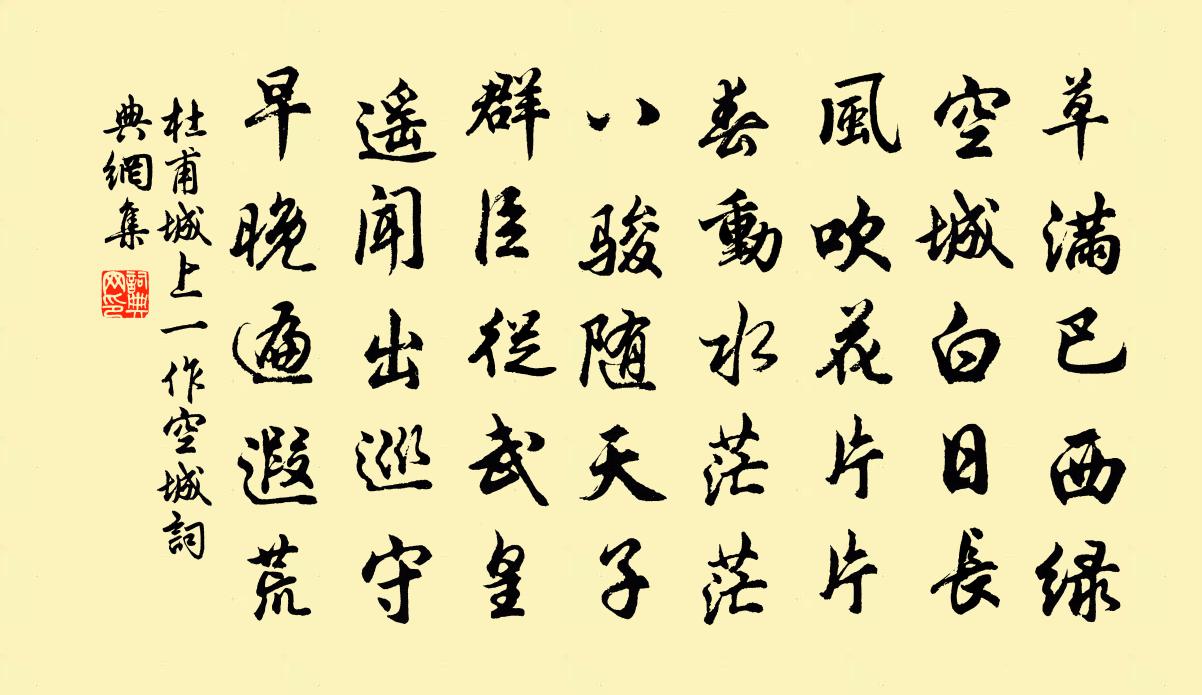 草满巴西绿
空城白日長
風吹花片片
春動水茫茫
八骏随天子
群臣從武皇
遥闻出巡守
早晚遍遐荒
杜甫城上一作空城詞
典網集
詞典
网印